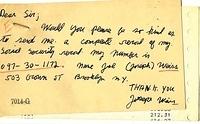 Dear Sir;
Would you please be so kind as
to send me. a complete record of my
social security record my number is
097-30-1172. name Joe (Joseph) Weiss
503 Crown St Brooklyn N.Y.
THANK YOU
Joseph Weiss
7014-G
212.31